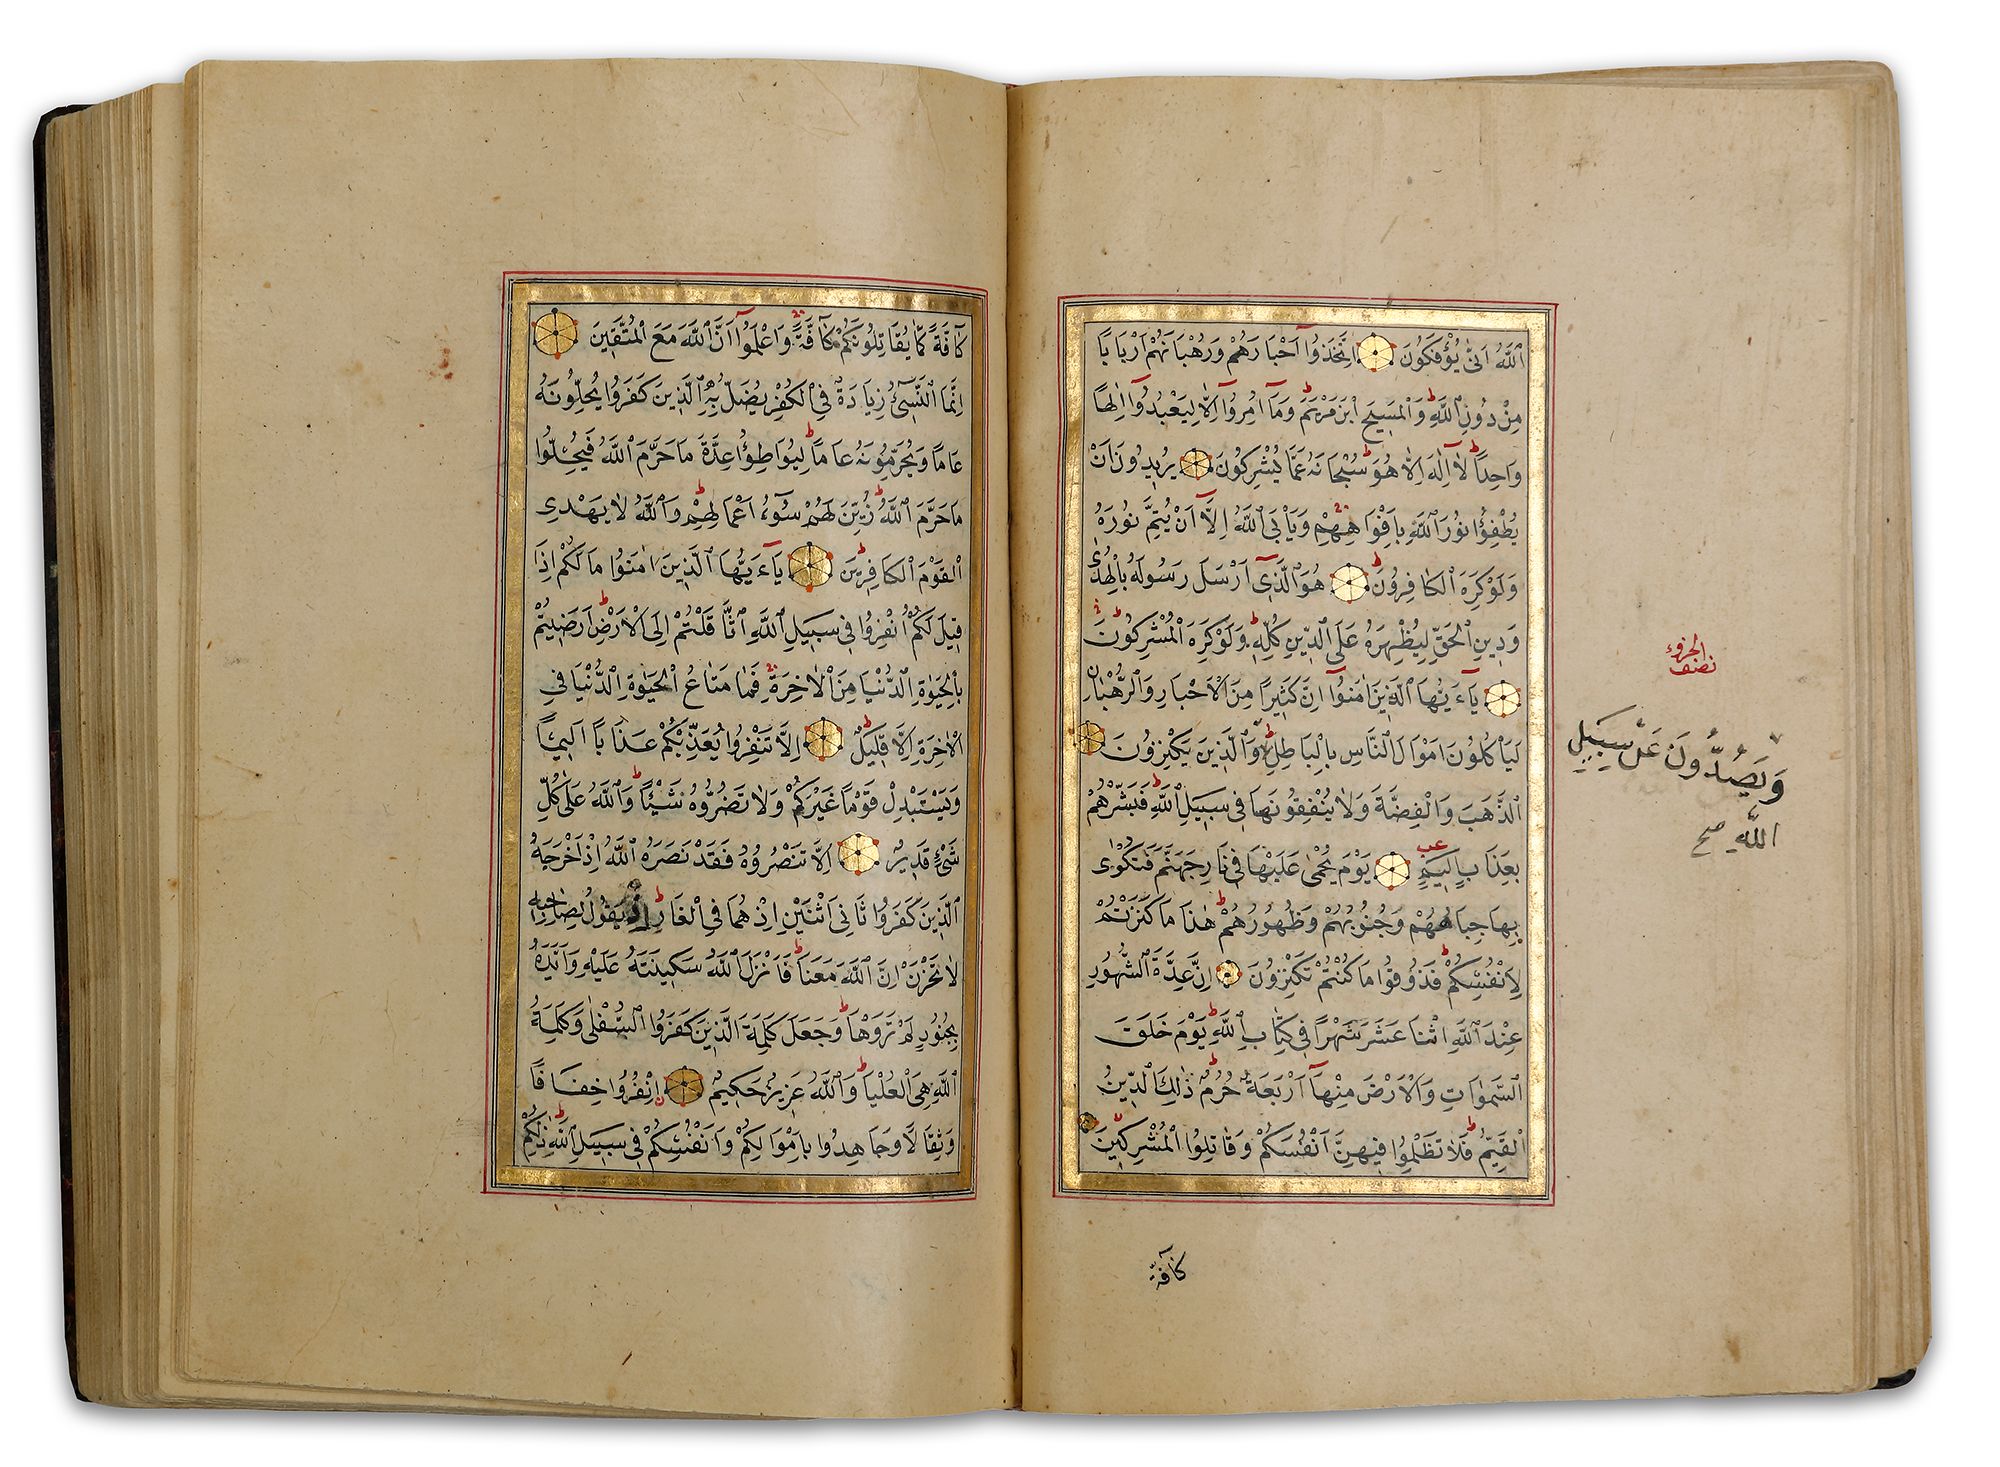 اَللّٰهُ اَنّٰى يُؤْفَكُونَ اِتَّخَذُٓوا اَحْبَارَهُمْ وَرُهْبَانَهُمْ اَرْبَابًا
مِنْ دُونِ اللّٰهِ وَالْمَسِيحَ ابْنَ مَرْيَمَ وَمَٓا اُمِرُٓوا اِلَّا لِيَعْبُدُٓوا اِلٰهًا
وَاحِدًا لَٓا اِلٰهَ اِلَّا هُوَ سُبْحَانَهُ عَمَّا يُشْرِكُونَ يُرِيدُونَ اَنْ
يُطْفِؤُا نُورَ اللّٰهِ بِاَفْوَاهِهِمْ وَيَاْبَى اللّٰهُ اِلَّٓا اَنْ يُتِمَّ نُورَهُ
وَلَوْ كَرِهَ الْكَافِرُونَ هُوَ الَّذِٓى اَرْسَلَ رَسُولَهُ بِالْهُدٰى
وَدِينِ الْحَقِّ لِيُظْهِرَهُ عَلَى الدِّينِ كُلِّهِ وَلَوْ كَرِهَ الْمُشْرِكُونَ
يَٓاءَيُّهَا الَّذِينَ اٰمَنُٓوا اِنَّ كَثِيرًا مِنَ الْاَحْبَارِ وَالرُّهْبَانِ
لَيَاْكُلُونَ اَمْوَالَ النَّاسِ بِالْبَاطِلِ وَالَّذِينَ يَكْنِزُونَ
الذَّهَبَ وَالْفِضَّةَ وَلَا يُنْفِقُونَهَا فِى سَبِيلِ اللّٰهِ فَبَشِّرْهُمْ
بِعَذَابٍ اَلِيمٍ يَوْمَ يُحْمٰى عَلَيْهَا فِى نَارِ جَهَنَّمَ فَتُكْوٰى
بِهَا جِبَاهُهُمْ وَجُنُوبُهُمْ وَظُهُورُهُمْ هٰذَا مَا كَنَزْتُمْ
لِاَنْفُسِكُمْ فَذُوقُوا مَا كُنْتُمْ تَكْنِزُونَ اِنَّ عِدَّةَ الشُّهُورِ
عِنْدَ اللّٰهِ اثْنَا عَشَرَ شَهْرًا فِى كِتَابِ اللّٰهِ يَوْمَ خَلَقَ
السَّمٰوَاتِ وَالْاَرْضَ مِنْهَٓا اَرْبَعَةٌ حُرُمٌ ذٰلِكَ الدِّينُ
الْقَيِّمُ فَلَا تَظْلِمُوا فِيهِنَّ اَنْفُسَكُمْ وَقَاتِلُوا الْمُشْرِكِينَ
كَٓافَّةً
الجزؤ
نصف
وَيَصُدُّونَ عَنْ سَبِيلِ
اللّٰهِ صح
كَٓافَّةً كَمَا يُقَاتِلُونَكُمْ كَٓافَّةً وَاعْلَمُٓوا اَنَّ اللّٰهَ مَعَ الْمُتَّقِينَ
اِنَّمَا النَّسِٓىءُ زِيَادَةٌ فِى الْكُفْرِ يُضَلُّ بِهِ الَّذِينَ كَفَرُوا يُحِلُّونَهُ
عَامًا وَيُحَرِّمُونَهُ عَامًا لِيُوَاطِؤُا عِدَّةَ مَا حَرَّمَ اللّٰهُ فَيُحِلُّوا
مَا حَرَّمَ اللّٰهُ زُيِّنَ لَهُمْ سُٓوءُ اَعْمَالِهِمْ وَاللّٰهُ لَا يَهْدِى
الْقَوْمَ الْكَافِرِينَ يَٓاءَيُّهَا الَّذِينَ اٰمَنُوا مَا لَكُمْ اِذَا
قِيلَ لَكُمُ انْفِرُوا فِى سَبِيلِ اللّٰهِ اثَّاقَلْتُمْ اِلَى الْاَرْضِ اَرَضِيتُمْ
بِالْحَيٰوةِ الدُّنْيَا مِنَ الْاٰخِرَةِ فَمَا مَتَاعُ الْحَيٰوةِ الدُّنْيَا فِى
الْاٰخِرَةِ اِلَّا قَلِيلٌ اِلَّا تَنْفِرُوا يُعَذِّبْكُمْ عَذَابًا اَلِيمًا
وَيَسْتَبْدِلْ قَوْمًا غَيْرَكُمْ وَلَا تَضُرُّوهُ شَيْئًا وَاللّٰهُ عَلٰى كُلِّ
شَىْءٍ قَدِيرٌ اِلَّا تَنْصُرُوهُ فَقَدْ نَصَرَهُ اللّٰهُ اِذْ اَخْرَجَهُ
الَّذِينَ كَفَرُوا ثَانِىَ اثْنَيْنِ اِذْ هُمَا فِى الْغَارِ اِذْ يَقُولُ لِصَاحِبِهِ
لَا تَحْزَنْ اِنَّ اللّٰهَ مَعَنَا فَاَنْزَلَ اللّٰهُ سَكِينَتَهُ عَلَيْهِ وَاَيَّدَهُ
بِجُنُودٍ لَمْ تَرَوْهَا وَجَعَلَ كَلِمَةَ الَّذِينَ كَفَرُوا السُّفْلٰى وَكَلِمَةُ
اللّٰهِ هِىَ الْعُلْيَا وَاللّٰهُ عَزِيزٌ حَكِيمٌ اِنْفِرُوا خِفَافًا
وَثِقَالًا وَجَاهِدُوا بِاَمْوَالِكُمْ وَاَنْفُسِكُمْ فِى سَبِيلِ اللّٰهِ ذٰلِكُمْ